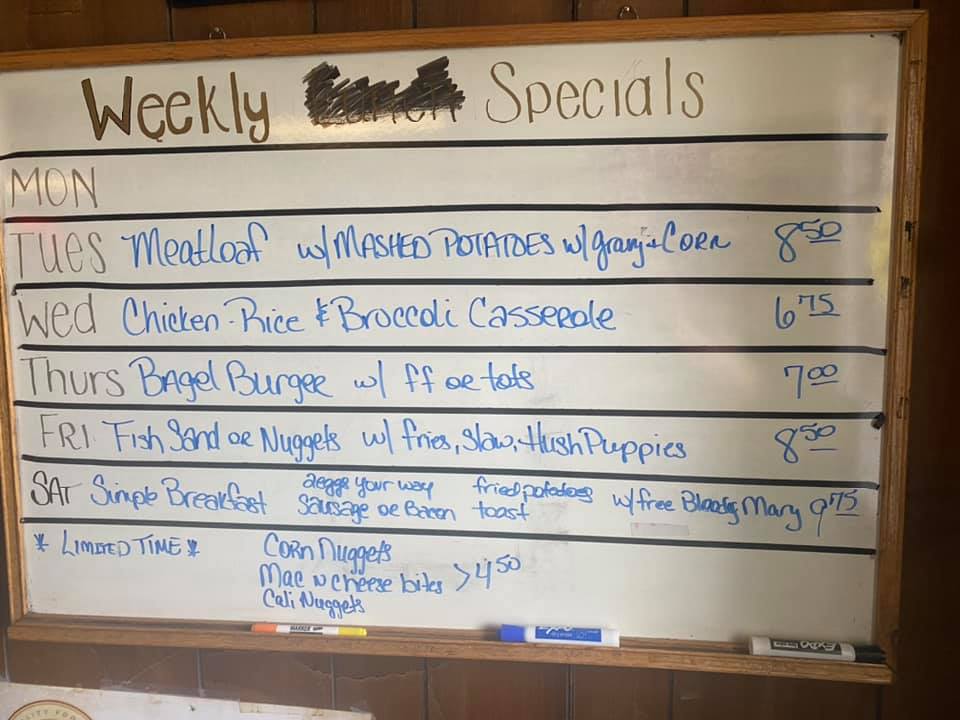 Weekly Specials
MON
TUES Meatloaf w/ MASHED POTATOES w/ gravy + CORN 8.50
Wed Chicken-Rice & Broccoli Casserole 6.75
Thurs Bagel Burger w/ ff or tots 7.00
FRI Fish Sand or Nuggets w/ fries, Slaw, Hush Puppies 8.50
SAT Simple Breakfast 2eggs your way fried potatoes w/ free Bloody Mary 9.75
Sausage or Bacon toast
* LIMITED TIME * CORN Nuggets
Mac n cheese bites > 4.50
Cali Nuggets
MARKER
EXPO
EXPO